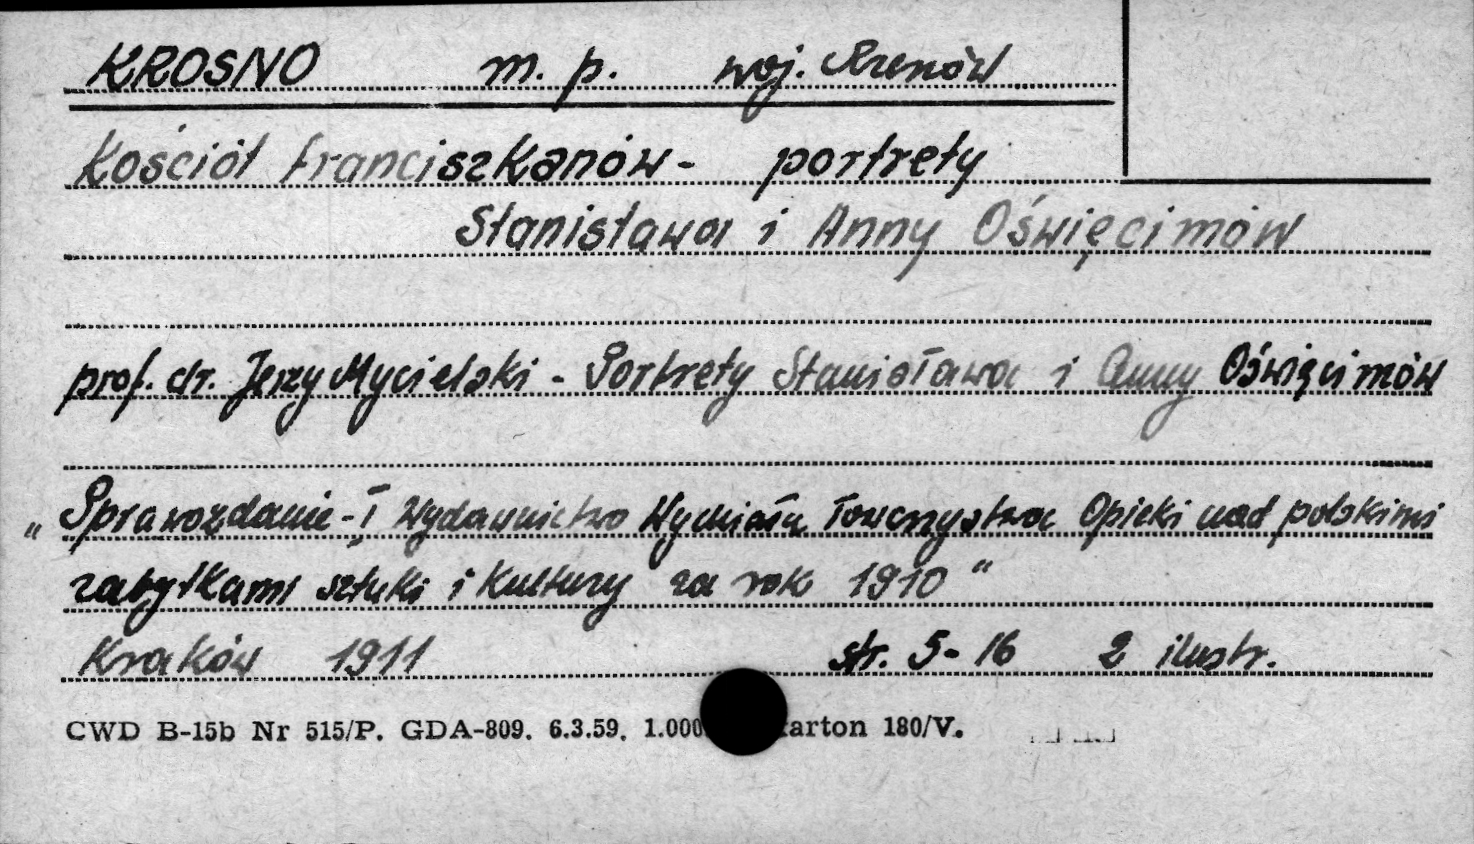 KROSNO m. p. woj. Rzeszów
Kościół franciszkanów - portrety
Stanisława i Anny Oświęcimów
prof. dr. Jerzy Mycielski - Portrety Stanisława i Anny Oświęcimów
„Sprawozdanie - i Wydawnictwo Wydziału Towarzystwa Opieki nad polskimi
zabytkami sztuki i Kultury za rok 1910"
Kraków 1911 str. 5-16 2 ilustr.
CWD B-15b Nr 515/P. GDA-809. 6.3.59. 1.000 karton 180/V.